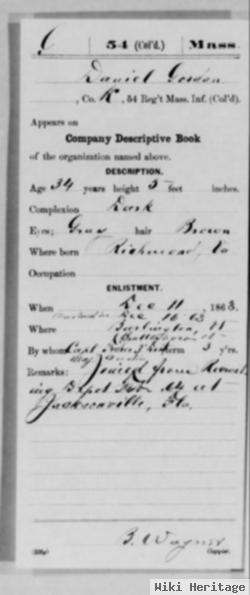 G 54 (Col'd.) Mass.
Daniel Gordon
, Co. K, 54 Reg't Mass. Inf. (Col'd.)
Appears on
Company Descriptive Book
of the organization named above.
DESCRIPTION.
Age 34 years height 5 feet inches.
Complexion Dark
Eyes; Gray hair Brown
Where born Richmond, Va
Occupation
ENLISTMENT.
When Dec 11, 1863.
Dec 16 63
Where Burlington, Vt
By whom Capt. term 3 y'rs.
Remarks: Joined from Recruit
ing Depot Feb 64 at
Jacksonville, Fla.
B. Wagner
Copyist.
Wiki Heritage